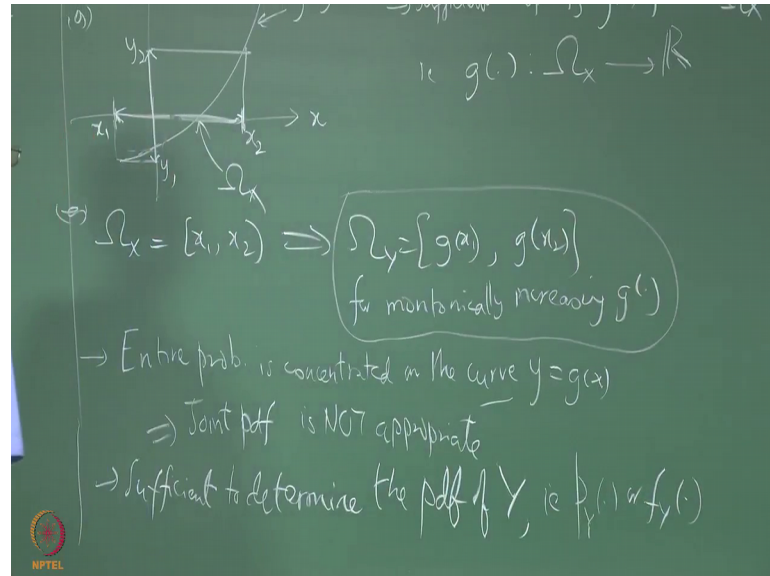 y₂
x₁
x₂
x
y₁
Ω_X
is g(.) : Ω_X → ℝ
Ω_X = [x₁, x₂) ⇒ Ω_Y = [g(x₁), g(x₂)]
for montonically increasing g(.)
→ Entire prob. is concentrated on the curve y = g(x)
⇒ Joint pdf is NOT appropriate
→ Sufficient to determine the pdf of Y, ie p_Y(.) or f_Y(.)
NPTEL